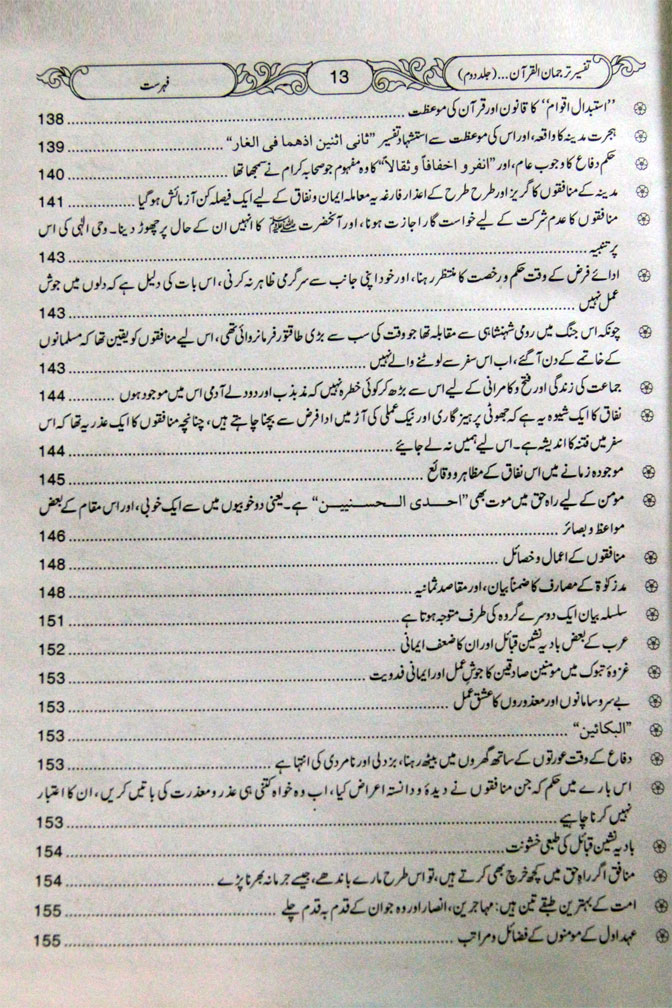 تفسیر ترجمان القرآن...(جلد دوم)
13
فہرست
''استبدال اقوام'' کا قانون اور قرآن کی موعظت ........ 138
ہجرت مدینہ کا واقعہ، اور اس کی موعظت سے استشہاد تفسیر ''ثانی اثنین اذھما فی الغار'' ........ 139
حکم دفاع کا وجوب عام، اور ''انفرو اخفافاً وثقالاً'' کا وہ مفہوم جو صحابہ کرام نے سمجھا تھا ........ 140
مدینہ کے منافقوں کا گریز اور طرح طرح کے اعذار فارغہ یہ معاملہ ایمان و نفاق کے لیے ایک فیصلہ کن آزمائش ہو گیا ........ 141
منافقوں کا عدم شرکت کے لیے خواست گار اجازت ہونا، اور آنحضرت ﷺ کا انہیں ان کے حال پر چھوڑ دینا۔ وحی الٰہی کی اس
پر تنبیہ ........ 143
ادائے فرض کے وقت حکم و رخصت کا منتظر رہنا، اور خود اپنی جانب سے سرگرمی ظاہر نہ کرنی، اس بات کی دلیل ہے کہ دلوں میں جوش
عمل نہیں ........ 143
چونکہ اس جنگ میں رومی شہنشاہی سے مقابلہ تھا جو وقت کی سب سے بڑی طاقتور فرمانروائی تھی، اس لیے منافقوں کو یقین تھا کہ مسلمانوں
کے خاتمے کے دن آ گئے، اب اس سفر سے لوٹنے والے نہیں ........ 143
جماعت کی زندگی اور فتح و کامرانی کے لیے اس سے بڑھ کر کوئی خطرہ نہیں کہ مذبذب اور دو دلے آدمی اس میں موجود ہوں ........ 144
نفاق کا ایک شیوہ یہ ہے کہ جھوٹی پرہیزگاری اور نیک عملی کی آڑ میں ادا فرض سے بچنا چاہتے ہیں، چنانچہ منافقوں کا ایک عذر یہ تھا کہ اس
سفر میں فتنہ کا اندیشہ ہے۔ اس لیے ہمیں نہ لے جائیے ........ 144
موجودہ زمانے میں اس نفاق کے مظاہر و وقائع ........ 145
مومن کے لیے راہ حق میں موت بھی ''احدی الحسنیین'' ہے۔ یعنی دو خوبیوں میں سے ایک خوبی، اور اس مقام کے بعض
مواعظ و بصائر ........ 146
منافقوں کے اعمال و خصائل ........ 148
مد زکوٰۃ کے مصارف کا ضمناً بیان، اور مقاصد ثمانیہ ........ 148
سلسلہ بیان ایک دوسرے گروہ کی طرف متوجہ ہوتا ہے ........ 151
عرب کے بعض بادیہ نشین قبائل اور ان کا ضعف ایمانی ........ 152
غزوۂ تبوک میں مومنین صادقین کا جوش عمل اور ایمانی فدویت ........ 153
بے سر و سامانوں اور معذوروں کا عشق عمل ........ 153
''البکائین'' ........ 153
دفاع کے وقت عورتوں کے ساتھ گھروں میں بیٹھ رہنا، بزدلی اور نامردی کی انتہا ہے ........ 153
اس بارے میں حکم کہ جن منافقوں نے دیدۂ و دانستہ اعراض کیا، اب وہ خواہ کتنی ہی عذر و معذرت کی باتیں کریں، ان کا اعتبار
نہیں کرنا چاہیے ........ 153
بادیہ نشین قبائل کی طبعی خشونت ........ 154
منافق اگر راہ حق میں کچھ خرچ بھی کرتے ہیں، تو اس طرح مارے باندھے، جیسے جرمانہ بھرنا پڑے ........ 154
امت کے بہترین طبقے تین ہیں: مہاجرین، انصار اور وہ جو ان کے قدم بہ قدم چلے ........ 155
عہد اول کے مومنوں کے فضائل و مراتب ........ 155